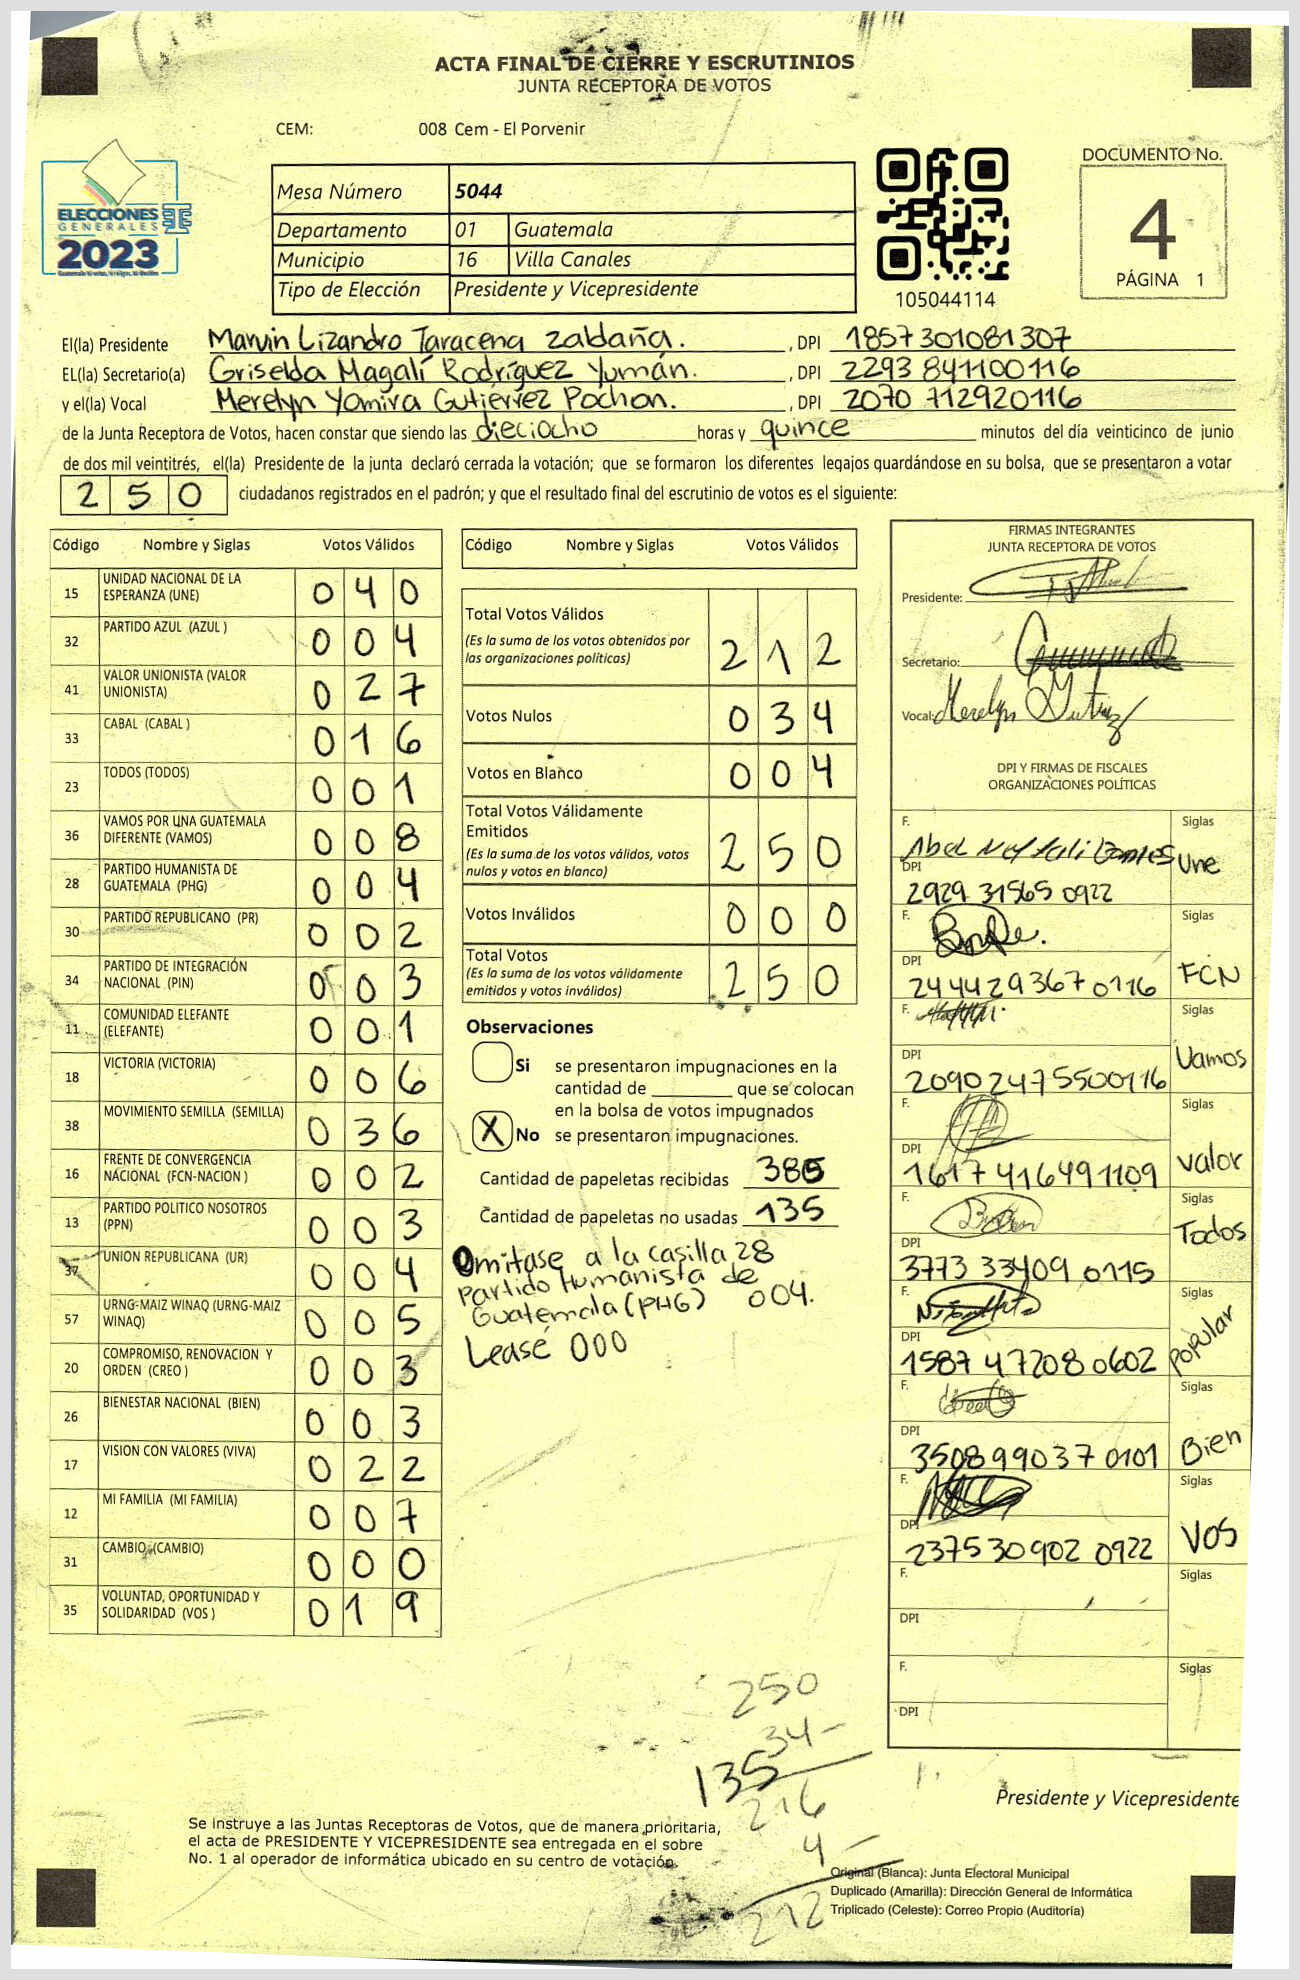 ACTA FINAL DE CIERRE Y ESCRUTINIOS
JUNTA RECEPTORA DE VOTOS
CEM: 008 Cem - El Porvenir
ELECCIONES
GENERALES
2023
Mesa Número 5044
Departamento 01 Guatemala
Municipio 16 Villa Canales
Tipo de Elección Presidente y Vicepresidente
105044114
DOCUMENTO No.
4
PÁGINA 1
El(la) Presidente Marvin Lizandro Taracena Zaldaña. , DPI 1857301081307
EL(la) Secretario(a) Griselda Magalí Rodríguez Yumán. , DPI 2293 841100116
y el(la) Vocal Merelyn Yomira Gutiérrez Pochon. , DPI 2070 712920116
de la Junta Receptora de Votos, hacen constar que siendo las dieciocho horas y quince minutos del día veinticinco de junio
de dos mil veintitrés, el(la) Presidente de la junta declaró cerrada la votación; que se formaron los diferentes legajos guardándose en su bolsa, que se presentaron a votar
250 ciudadanos registrados en el padrón; y que el resultado final del escrutinio de votos es el siguiente:
Código Nombre y Siglas Votos Válidos
15 UNIDAD NACIONAL DE LA ESPERANZA (UNE) 040
32 PARTIDO AZUL (AZUL ) 004
41 VALOR UNIONISTA (VALOR UNIONISTA) 027
33 CABAL (CABAL ) 016
23 TODOS (TODOS) 001
36 VAMOS POR UNA GUATEMALA DIFERENTE (VAMOS) 008
28 PARTIDO HUMANISTA DE GUATEMALA (PHG) 004
30 PARTIDO REPUBLICANO (PR) 002
34 PARTIDO DE INTEGRACIÓN NACIONAL (PIN) 003
11 COMUNIDAD ELEFANTE (ELEFANTE) 001
18 VICTORIA (VICTORIA) 006
38 MOVIMIENTO SEMILLA (SEMILLA) 036
16 FRENTE DE CONVERGENCIA NACIONAL (FCN-NACION ) 002
13 PARTIDO POLITICO NOSOTROS (PPN) 003
37 UNION REPUBLICANA (UR) 004
57 URNG-MAIZ WINAQ (URNG-MAIZ WINAQ) 005
20 COMPROMISO, RENOVACION Y ORDEN (CREO ) 003
26 BIENESTAR NACIONAL (BIEN) 003
17 VISION CON VALORES (VIVA) 022
12 MI FAMILIA (MI FAMILIA) 007
31 CAMBIO (CAMBIO) 000
35 VOLUNTAD, OPORTUNIDAD Y SOLIDARIDAD (VOS ) 019
Código Nombre y Siglas Votos Válidos
Total Votos Válidos 212
(Es la suma de los votos obtenidos por
las organizaciones políticas)
Votos Nulos 034
Votos en Blanco 004
Total Votos Válidamente
Emitidos 250
(Es la suma de los votos válidos, votos
nulos y votos en blanco)
Votos Inválidos 000
Total Votos 250
(Es la suma de los votos válidamente
emitidos y votos inválidos)
Observaciones
Si se presentaron impugnaciones en la
cantidad de ________ que se colocan
en la bolsa de votos impugnados
X No se presentaron impugnaciones.
Cantidad de papeletas recibidas 385
Cantidad de papeletas no usadas 135
Omitase a la casilla 28
Partido Humanista de
Guatemala (PHG) 004.
Lease 000
FIRMAS INTEGRANTES
JUNTA RECEPTORA DE VOTOS
Presidente:
Secretario:
Vocal: Merelyn
DPI Y FIRMAS DE FISCALES
ORGANIZACIONES POLÍTICAS
F. Abel Siglas Une
DPI 2929 31565 0922
F. Siglas FCN
DPI 2444293670116
F. Siglas Vamos
DPI 20902475500116
F. Siglas Valor
DPI 1617416491109
F. Siglas Todos
DPI 3773 33409 0115
F. Siglas popular
DPI 1587 47208 0602
F. Siglas Bien
DPI 350899037 0101
F. Siglas VOS
DPI 237530902 0922
F. Siglas
DPI
F. Siglas
DPI
250
34-
135
216
4-
212
Presidente y Vicepresidente
Se instruye a las Juntas Receptoras de Votos, que de manera prioritaria,
el acta de PRESIDENTE Y VICEPRESIDENTE sea entregada en el sobre
No. 1 al operador de informática ubicado en su centro de votación.
Original (Blanca): Junta Electoral Municipal
Duplicado (Amarilla): Dirección General de Informática
Triplicado (Celeste): Correo Propio (Auditoría)